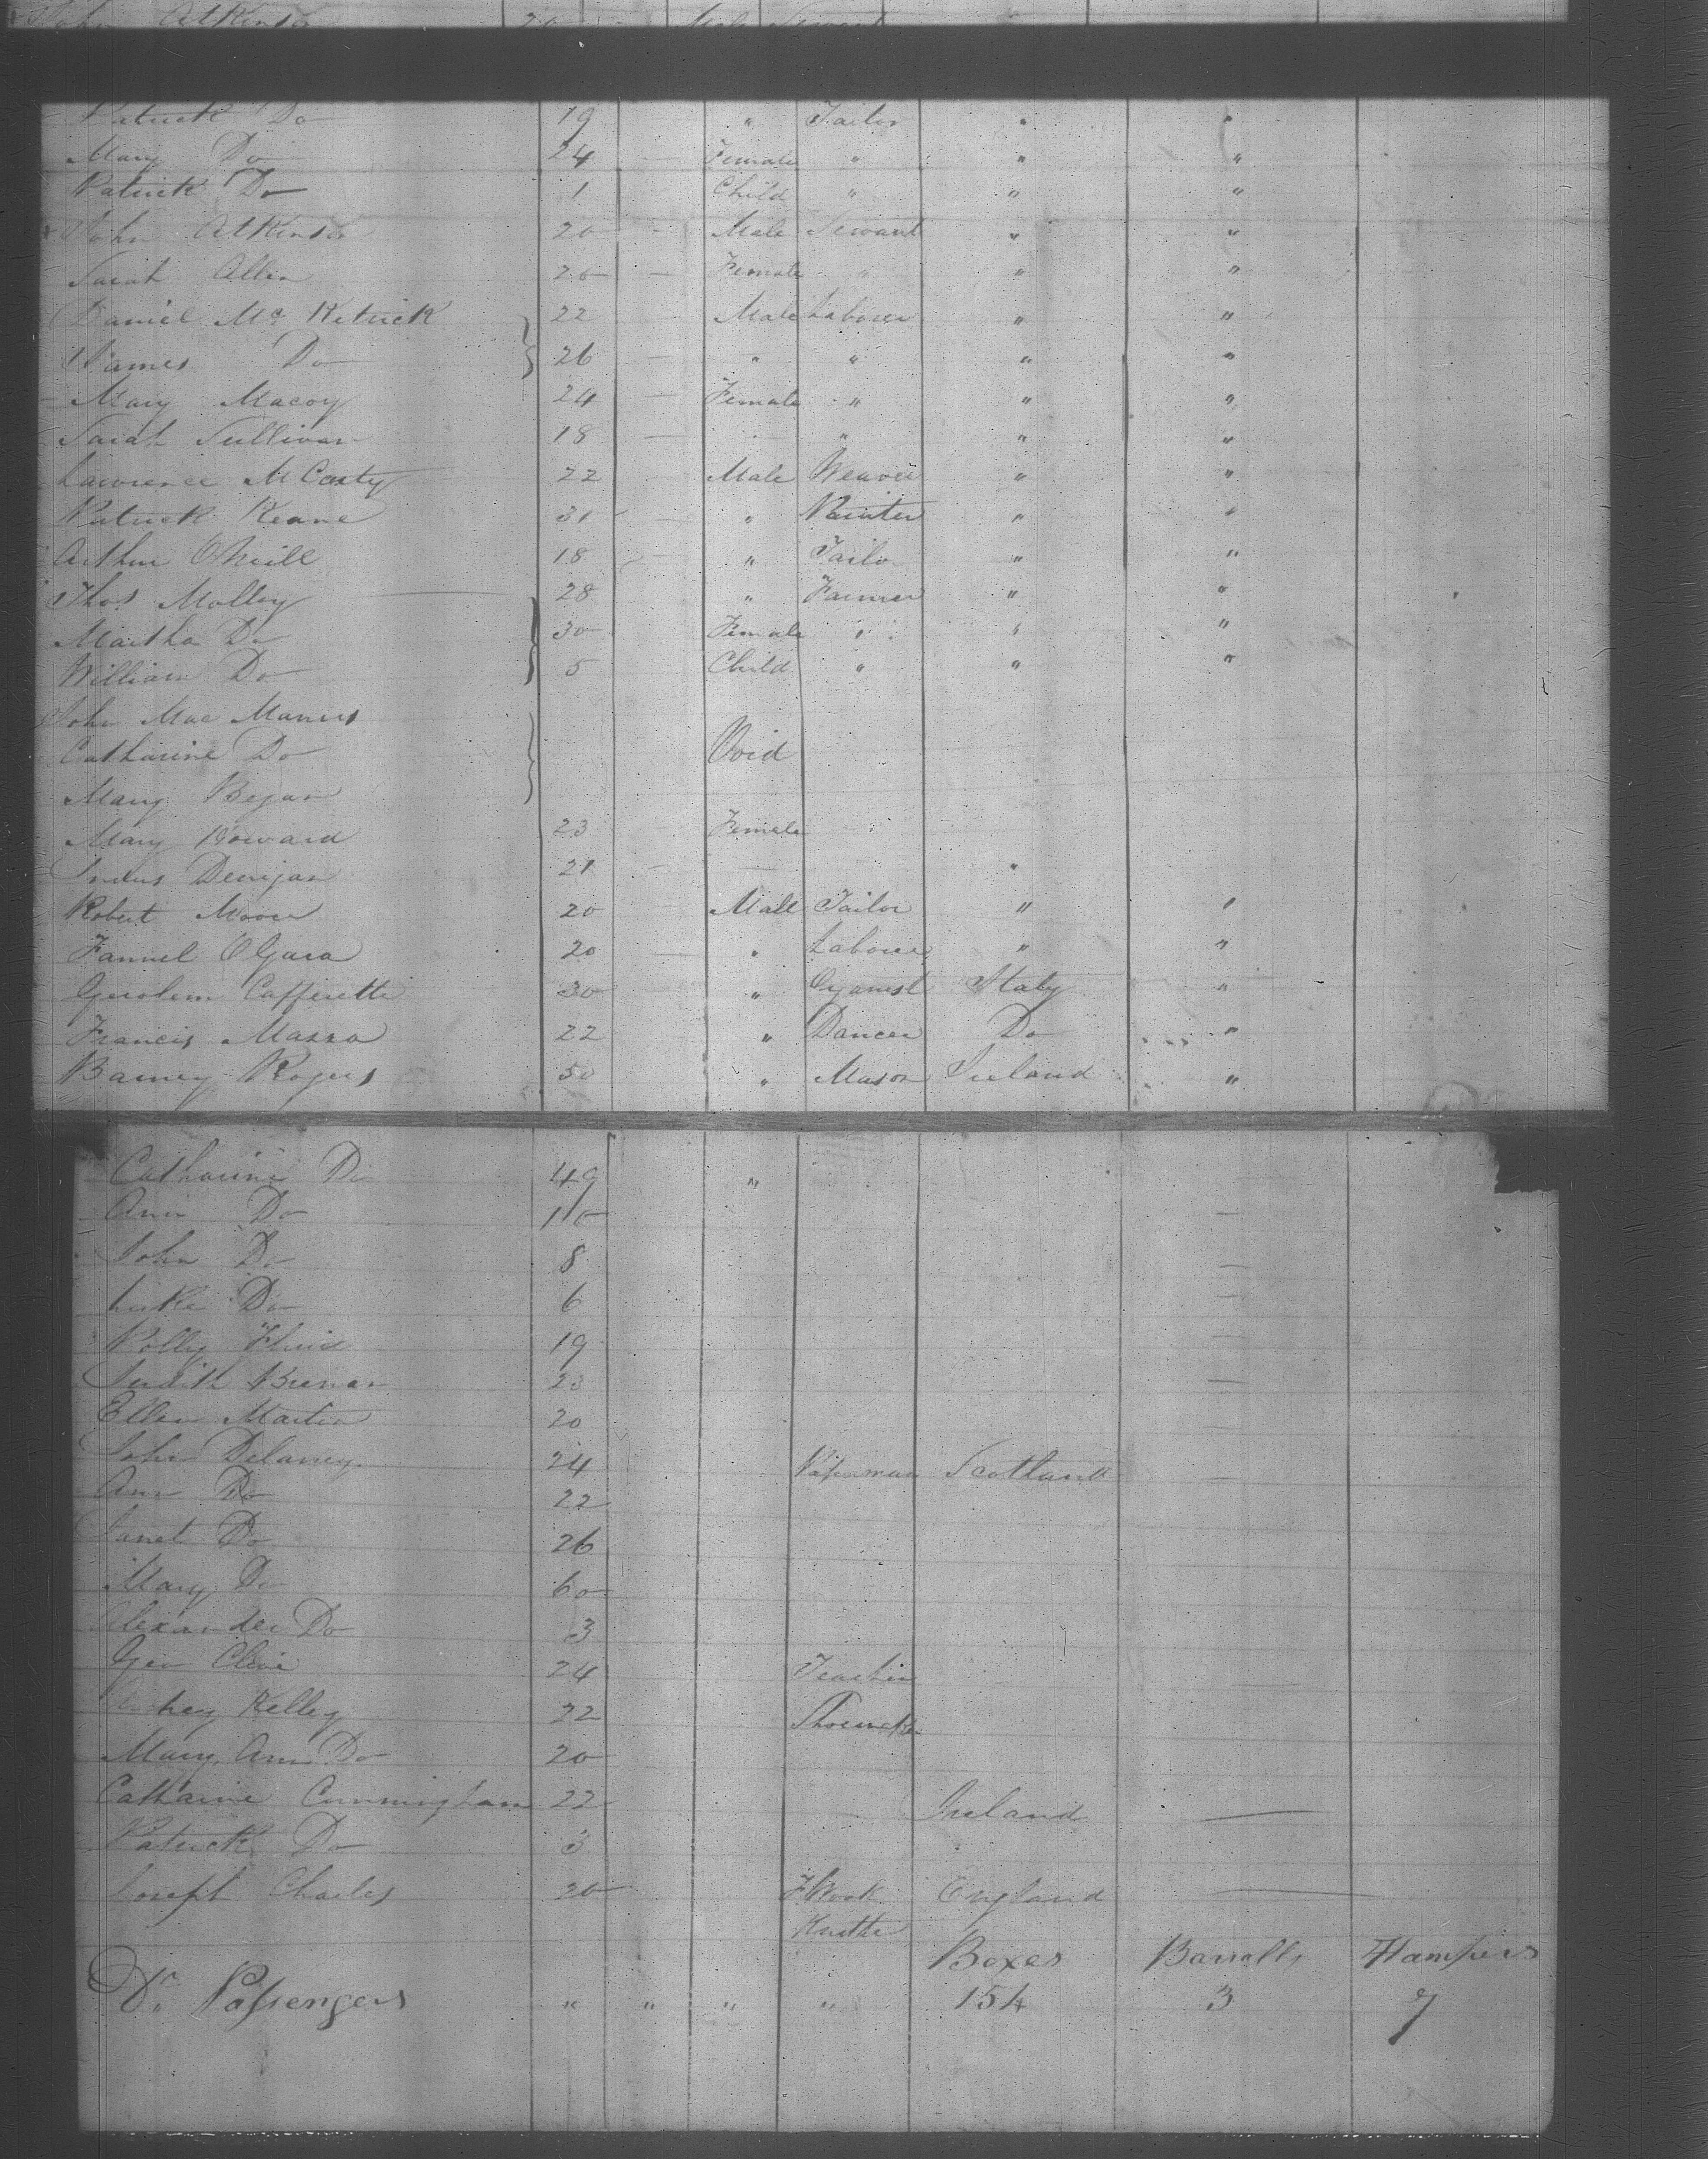 John Atkinson 20 Male Servant
Patrick Do 19 " Tailor " "
Mary Do 24 Female " " "
Patrick Do 1 Child " " "
John Atkinson 20 Male Servant " "
Sarah Allen 26 Female " " "
Daniel Mc Ketrick 22 Male Laborer " "
James Do 26 " " " "
Mary Macoy 24 Female " " "
Sarah Sullivan 18 " " " "
Lawrence McCarty 22 Male Weaver " "
Patrick Keane 31 " Painter " "
Arthur O'Neill 18 " Tailor " "
Thos. Molloy 28 " Farmer " "
Martha Do 30 Female " " "
William Do 5 Child " " "
John Mac Manus
Catharine Do Void
Mary Began
Mary Howard 23 Female
Denigan 21 "
Robert Moore 20 Male Tailor " "
O'Gara 20 " Laborer " "
Gerolem Cafferetti 30 " Organist Italy "
Francis Massa 22 " Dancer Do "
Barney Rogers 50 " Mason Ireland "
Catharine Do 49 "
Ann Do 10
John Do 8
Luke Do 6
Polly 19
Judith Brenan 23
Ellen Martin 20
John Delaney 24 Paperman Scotland
Ann Do 22
Janet Do 26
Mary Do 60
Alexander Do 3
Geo 24
Kelley 22 Shoemaker
Mary Ann Do 20
Catharine Cunningham 22 Ireland
Patrick Do 3
Joseph Charles 20 England
Boxes Barrells Hampers
Do Passengers " " " " 154 3 7